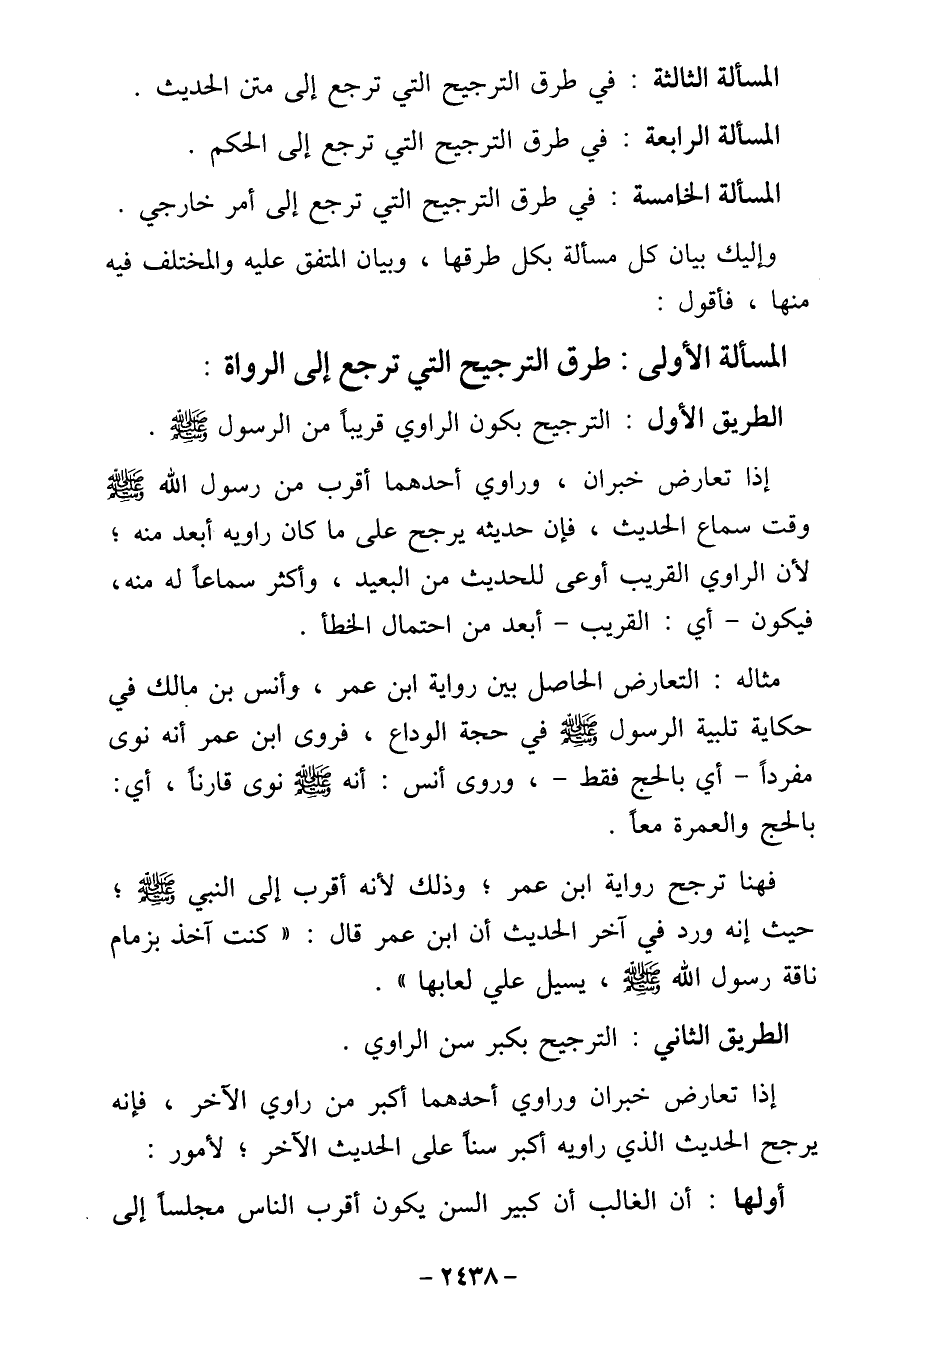 المسألة الثالثة : في طرق الترجيح التي ترجع إلى متن الحديث .
المسألة الرابعة : في طرق الترجيح التي ترجع إلى الحكم .
المسألة الخامسة : في طرق الترجيح التي ترجع إلى أمر خارجي .
وإليك بيان كل مسألة بكل طرقها ، وبيان المتفق عليه والمختلف فيه
منها ، فأقول :
المسألة الأولى : طرق الترجيح التي ترجع إلى الرواة :
الطريق الأول : الترجيح بكون الراوي قريباً من الرسول ﷺ .
إذا تعارض خبران ، وراوي أحدهما أقرب من رسول الله ﷺ
وقت سماع الحديث ، فإن حديثه يرجح على ما كان راويه أبعد منه ؛
لأن الراوي القريب أوعى للحديث من البعيد ، وأكثر سماعاً له منه،
فيكون – أي : القريب – أبعد من احتمال الخطأ .
مثاله : التعارض الحاصل بين رواية ابن عمر ، وأنس بن مالك في
حكاية تلبية الرسول ﷺ في حجة الوداع ، فروى ابن عمر أنه نوى
مفرداً – أي بالحج فقط – ، وروى أنس : أنه ﷺ نوى قارناً ، أي:
بالحج والعمرة معاً .
فهنا ترجح رواية ابن عمر ؛ وذلك لأنه أقرب إلى النبي ﷺ ؛
حيث إنه ورد في آخر الحديث أن ابن عمر قال : « كنت آخذ بزمام
ناقة رسول الله ﷺ ، يسيل علي لعابها » .
الطريق الثاني : الترجيح بكبر سن الراوي .
إذا تعارض خبران وراوي أحدهما أكبر من راوي الآخر ، فإنه
يرجح الحديث الذي راويه أكبر سناً على الحديث الآخر ؛ لأمور :
أولها : أن الغالب أن كبير السن يكون أقرب الناس مجلساً إلى
– ٢٤٣٨ –